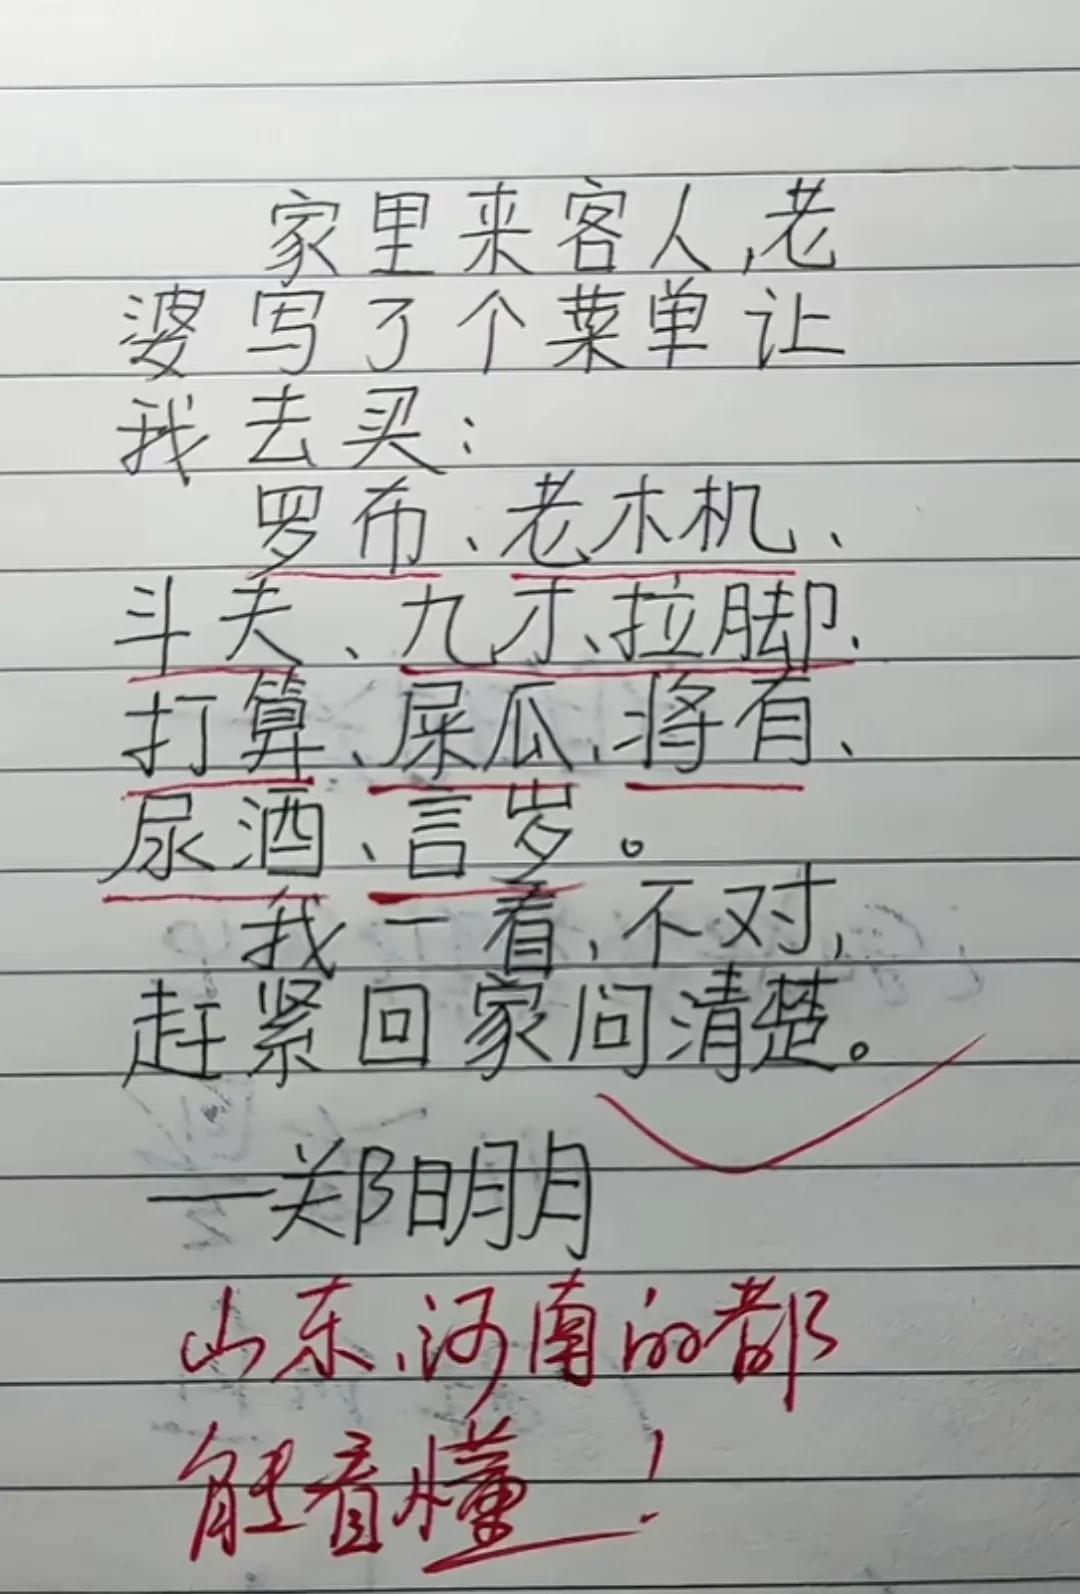 家里来客人,老
婆写了个菜单让
我去买:
罗布、老木机、
斗夫、九才、拉脚、
打算、屎瓜、将有、
尿酒、言岁。
我一看,不对,
赶紧回家问清楚。
——郑阳明月
山东、河南的都
能看懂!